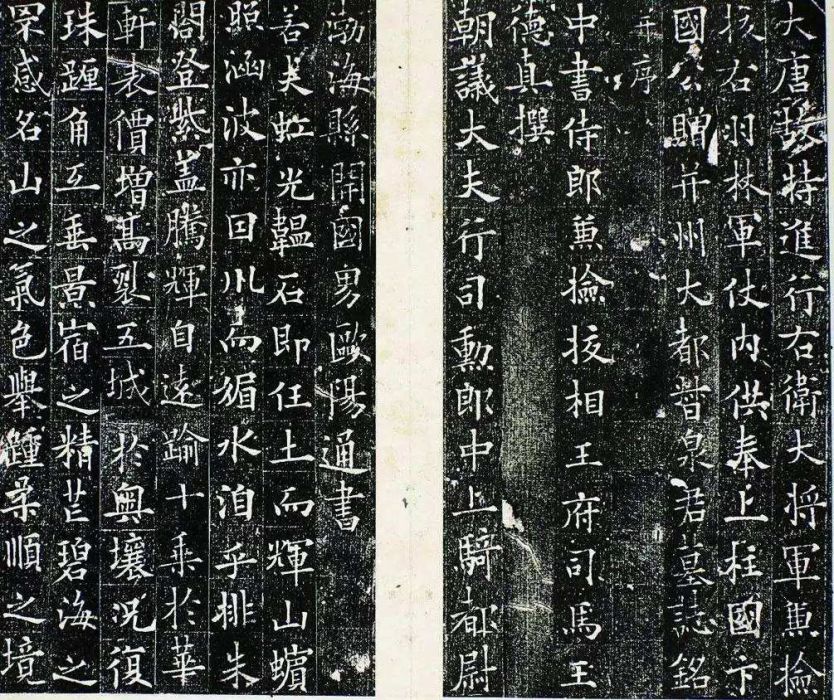 大唐故特進行右衛大將軍兼撿
挍右羽林軍仗內供奉上柱國卞
國公贈并州大都督泉君墓誌銘
并序
中書侍郎兼撿挍相王府司馬王
德真撰
朝議大夫行司勳郎中上騎都尉
渤海縣開國男歐陽通書
若夫虹光韞石即任土而輝山蠙
照涵波亦因川而媚水洎乎排朱
閣登紫蓋騰輝自遠踰十乘於華
軒表價增高裂五城於奧壤況復
珠躔角互垂景宿之精芒碧海之
罘感名山之氣色舉踵柔順之境